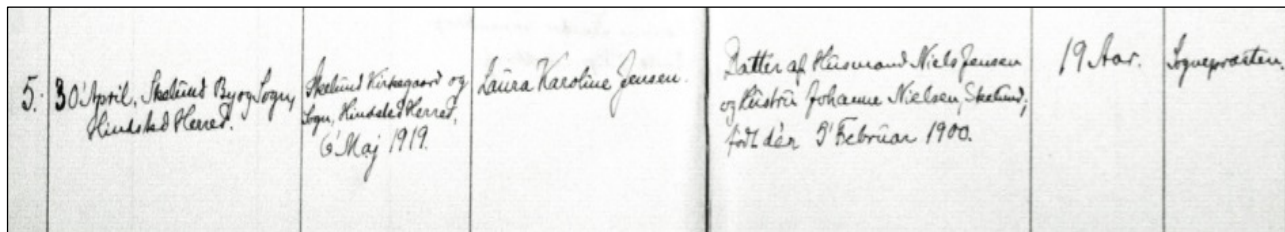 5.
30' April, Skelund By og Sogn,
Hindsted Herred.
Skelund Kirkegaard og
Sogn, Hindsted Herred,
6' Maj 1919.
Laura Karoline Jensen.
Datter af Husmand Niels Jensen
og Hustru Johanne Nielsen, Skelund;
født der 5' Februar 1900.
19 Aar.
Sognepræsten.